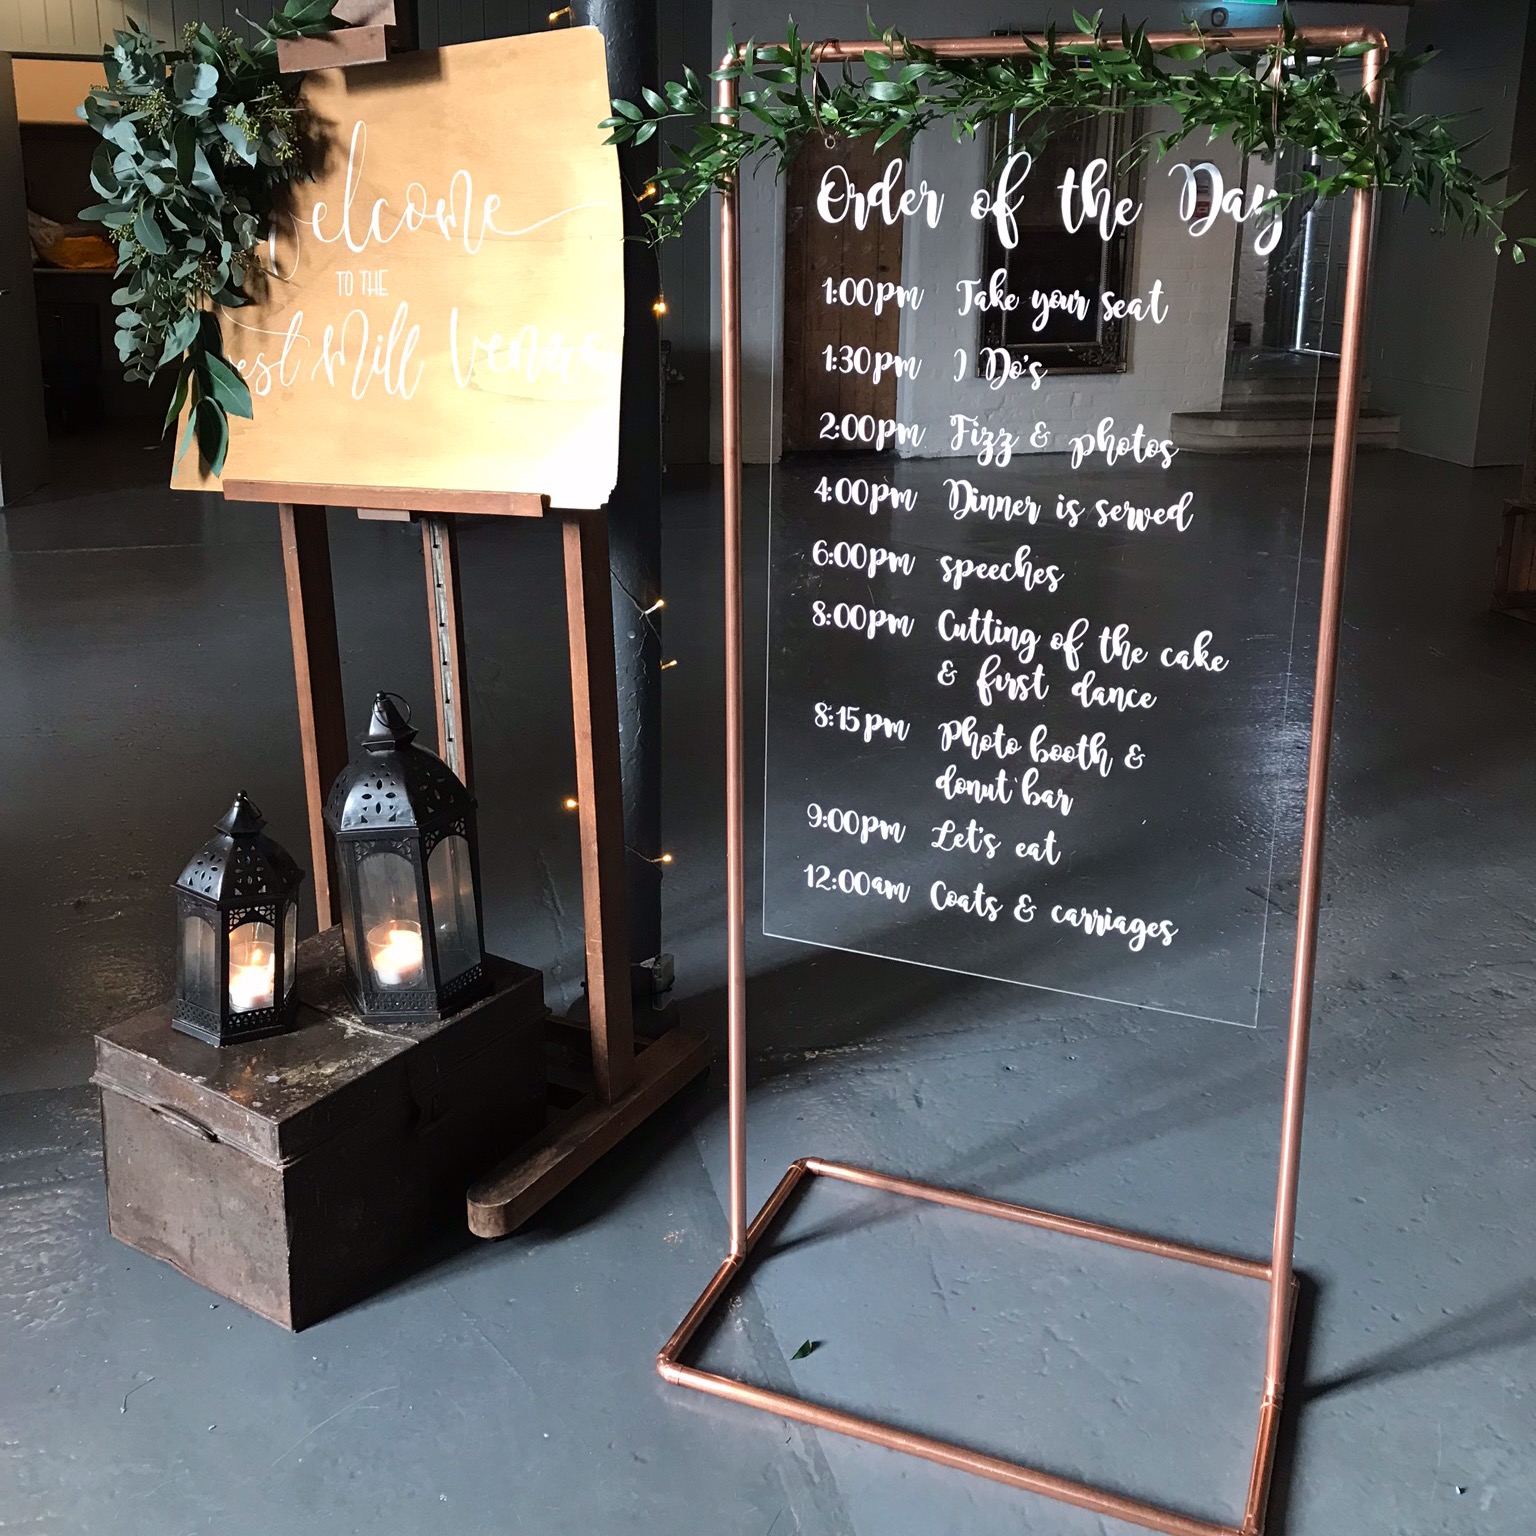 Welcome
TO THE
Mill Venue
Order of the Day
1:00pm Take your seat
1:30pm I Do's
2:00pm Fizz & photos
4:00pm Dinner is served
6:00pm speeches
8:00pm Cutting of the cake
& first dance
8:15pm Photo booth &
donut bar
9:00pm Let's eat
12:00am Coats & carriages